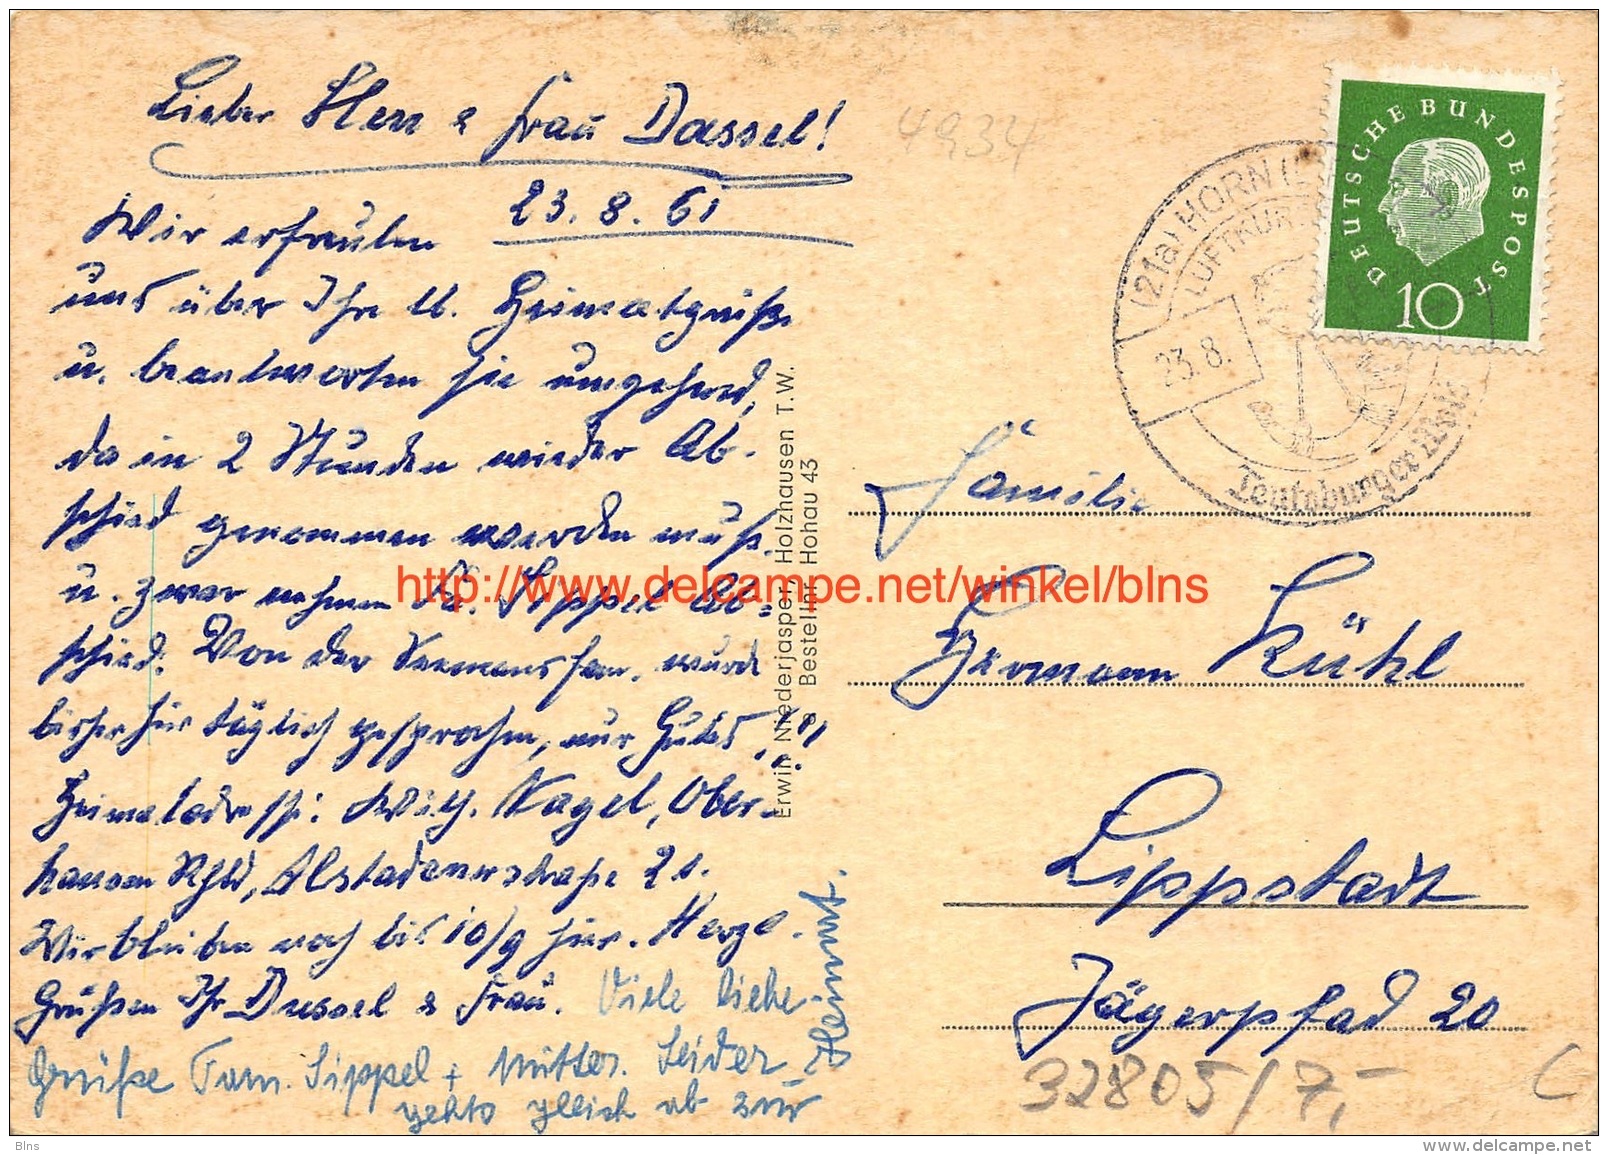 Lieber Herr & Frau Dassel!
23.8.61
Wir erfreuten
uns über Ihre lb. Heimatgrüße
u. beantworten sie umgehend,
da in 2 Stunden wieder Ab-
schied genommen werden muß.
u. zwar nehmen Fa. Sippel Ab=
schied. Von der Seemansfam. wurde
bisher hier täglich gesprochen, nur Gutes!!
Heimatadresse: Wilh. Nagel, Ober-
hausen Rhld, Alstadenerstraße 21.
Wir bleiben noch bis 10/9 hier. Herzl.
Grüßen Ihr Dussel & Frau. Viele liebe
Grüße Fam. Sippel + Mutter. Leider
gehts gleich ab zur
Heimat.
Erwin Niederjasper, Holzhausen T.W.
Bestellnr. Hohau 43
4934
(21a) HORN (
LUFTKUR
23.8.
Teutoburger Wald
DEUTSCHE BUNDESPOST
10
Familie
Hermann Kühl
Lippstadt
Jägerpfad 20
32805/7,-
http://www.delcampe.net/winkel/blns
Blns
www.delcampe.net